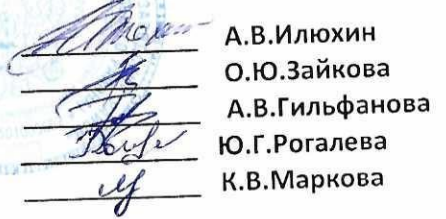 А.В.Илюхин
О.Ю.Зайкова
А.В.Гильфанова
Ю.Г.Рогалева
К.В.Маркова